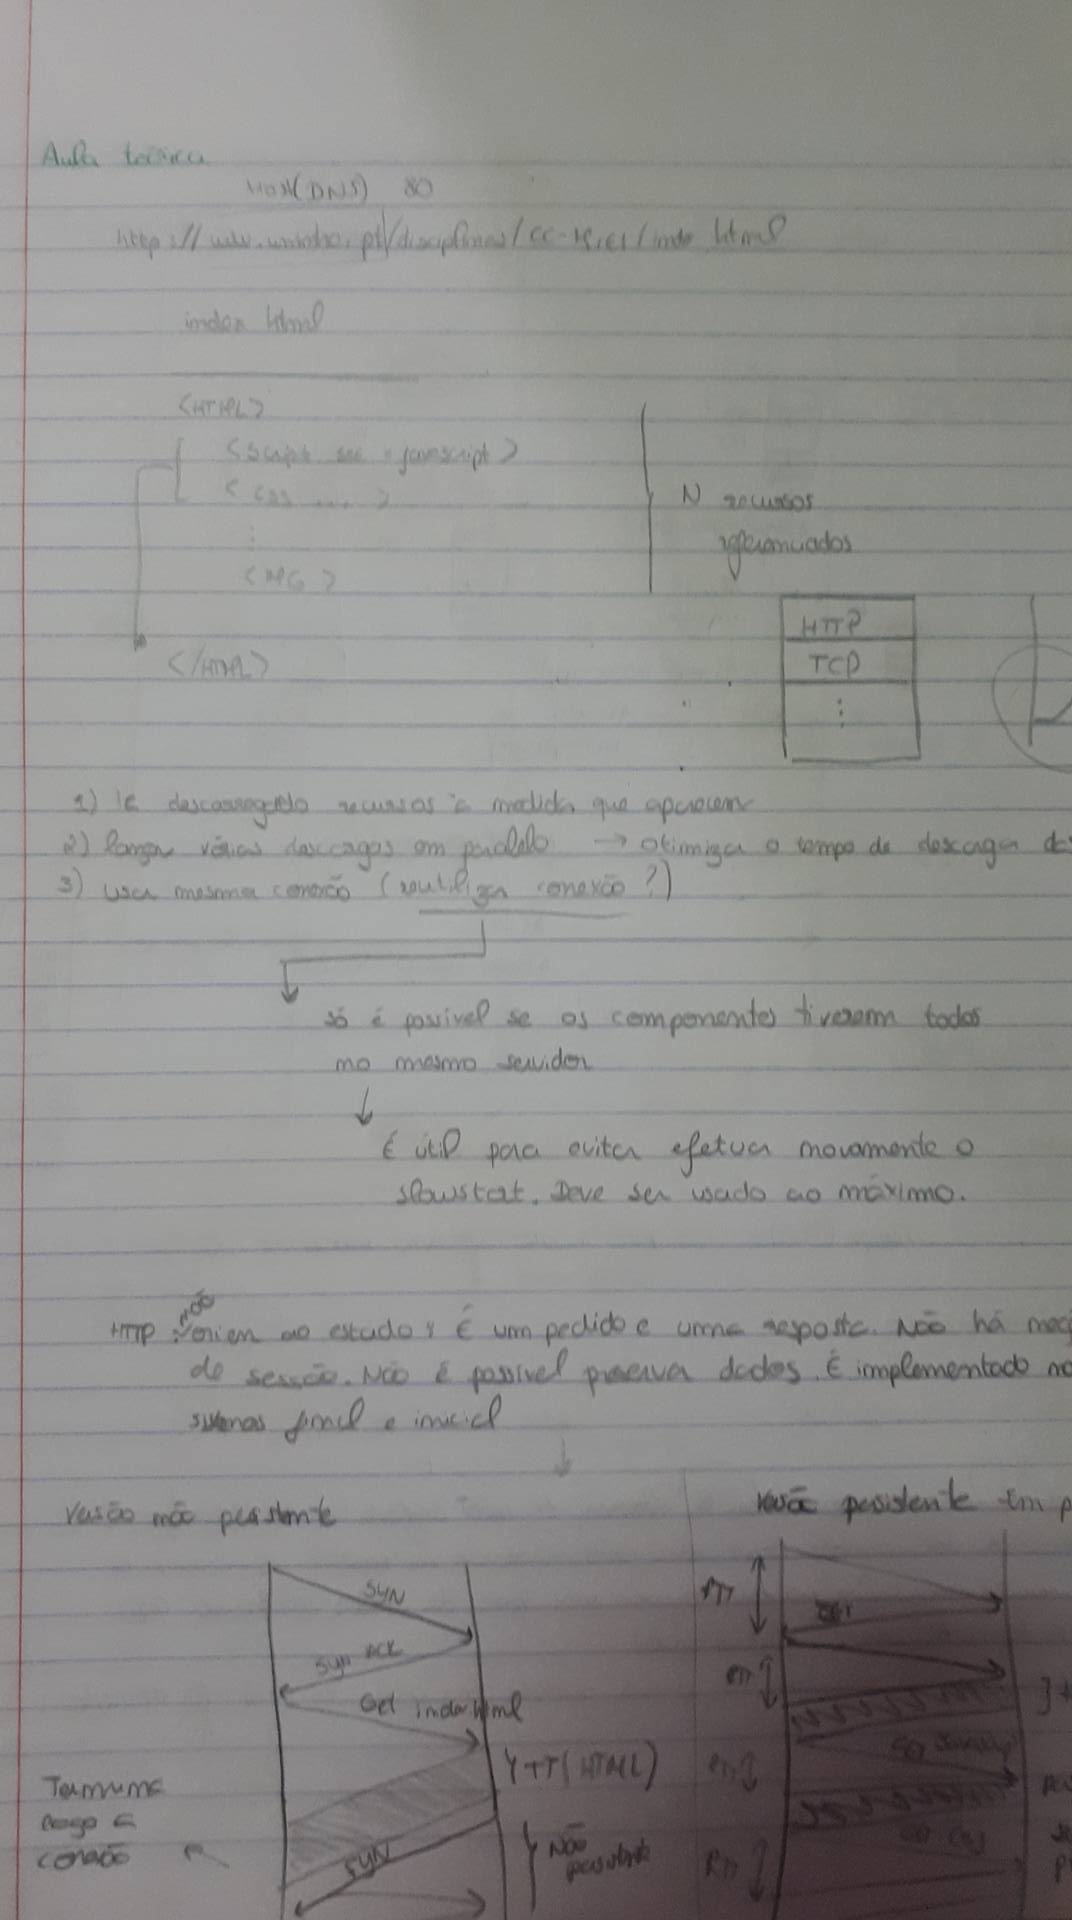 Aula teórica
Host(DNS) 80
http://www.uminho.pt/disciplinas/cc / index html
index html
<HTML>
<Script src = javascript>
< css ..... >
⋮
<IMG>
</HTML>
N recursos
referenciados
HTTP
TCP
⋮
1) ir descarregando recursos à medida que aparecem
2) lançar várias descargas em paralelo → otimiza o tempo de descarga
3) usar mesma conexão (reutilizar conexão?)
só é possivel se os componentes tiverem todos
no mesmo servidor
É útil para evitar efetuar novamente o
slowstart. Deve ser usado ao máximo.
não
HTTP orien ao estado: É um pedido e uma resposta. Não há
de sessão. Não é possivel preservar dados. É implementado
final e inicial
Versão não persistente
SYN
SYN ACK
Get index.html
T(HTML)
Termina
logo a
conexão
SYN
Não
persistente
Versão persistente Em
RTT
RTT
RTT
RTT